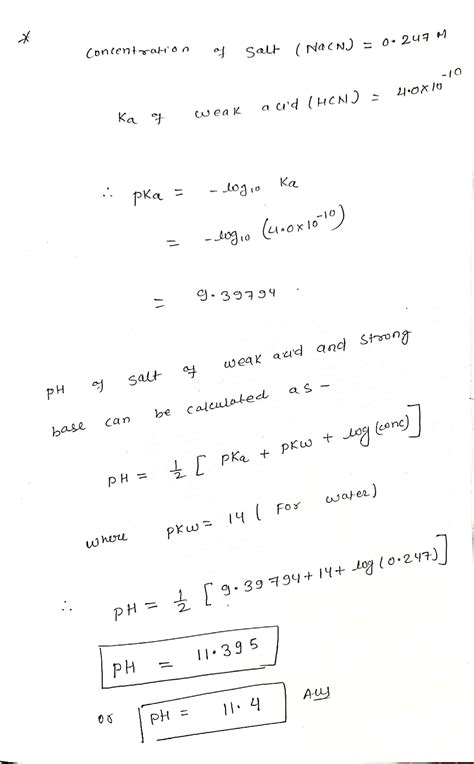 *
Concentration of salt (NaCN) = 0.247 M
Ka of weak acid (HCN) = 4.0×10⁻¹⁰
∴ pKa = -log₁₀ Ka
= -log₁₀ (4.0×10⁻¹⁰)
= 9.39794
pH of salt of weak acid and strong
base can be calculated as -
pH = 1/2 [ pKa + pKw + log (conc) ]
where pKw = 14 ( For water)
∴ pH = 1/2 [ 9.39794 + 14 + log (0.247) ]
pH = 11.395
or pH = 11.4 Ans